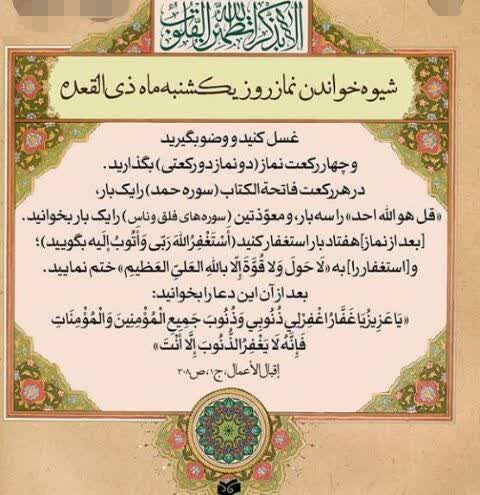 الا بذکر الله تطمئن القلوب
شیوه خواندن نماز روز یکشنبه ماه ذی القعده
غسل کنید و وضو بگیرید
و چهار رکعت نماز (دو نماز دو رکعتی) بگذارید.
در هر رکعت فاتحة الکتاب (سوره حمد) را یک بار،
«قل هو الله احد» را سه بار، و معوّذتین (سوره‌های فلق و ناس) را یک بار بخوانید.
[بعد از نماز] هفتاد بار استغفار کنید (أَسْتَغْفِرُ اللهَ رَبّی وَأَتُوبُ إلَیه بگویید)؛
و [استغفار را] به «لَا حَولَ وَلا قُوَّةَ إلّا بِاللهِ العَليّ العَظیمِ» ختم نمایید.
بعد از آن این دعا را بخوانید:
«یَا عَزِیزُ یَا غَفَّارُ اغْفِرْ لِي ذُنُوبِي وَذُنُوبَ جَمِیعِ الْمُؤْمِنِینَ وَالْمُؤْمِنَاتِ
فَإِنَّهُ لَا یَغْفِرُ الذُّنُوبَ إِلَّا أَنْتَ»
إقبال الأعمال، ج۱، ص۳۰۸